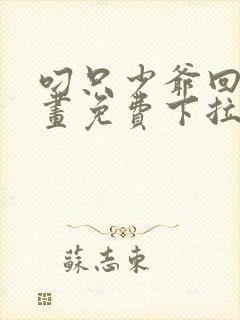 叼只少爺回
畫免費下拉
蘇志東